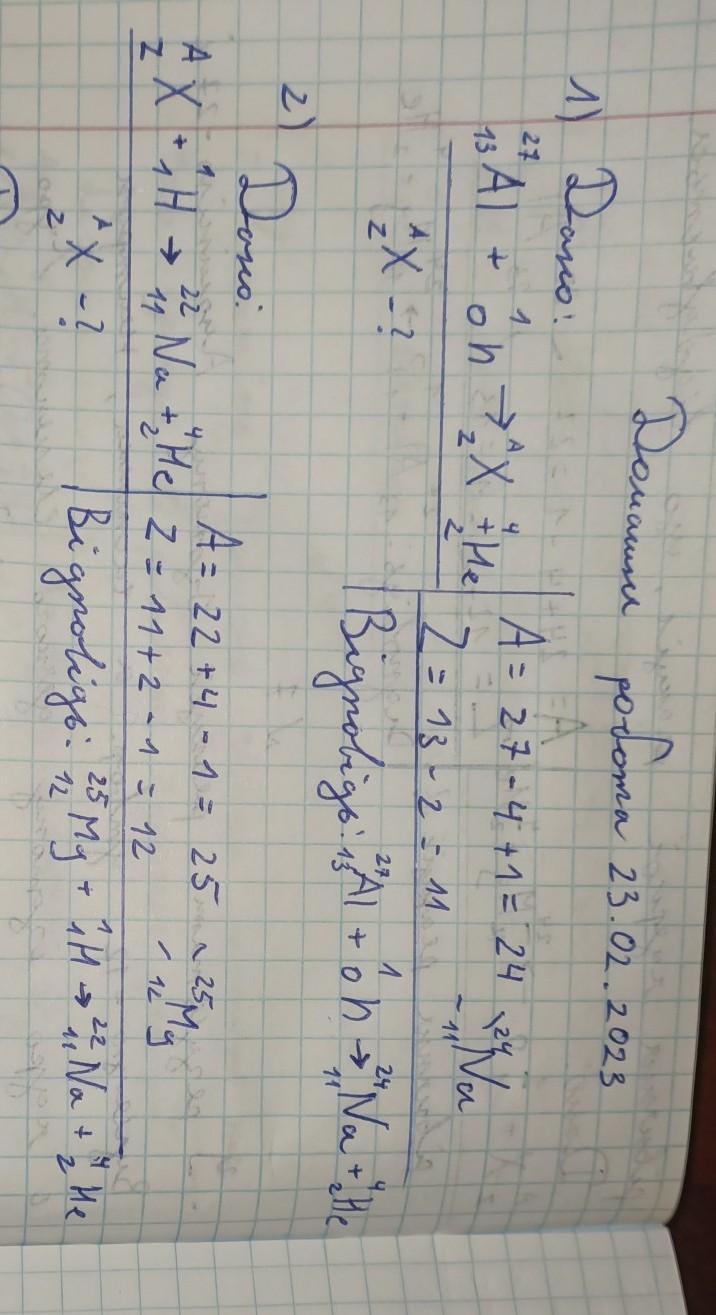 Домашня робота 23.02.2023
1) Дано:
²⁷₁₃Al + ¹₀n → ᴬ_ZX + ⁴₂He
ᴬ_ZX - ?
A = 27 - 4 + 1 = 24
Z = 13 - 2 = 11
- ²⁴₁₁Na
Відповідь: ²⁷₁₃Al + ¹₀n → ²⁴₁₁Na + ⁴₂He
2) Дано:
ᴬ_ZX + ¹₁H → ²²₁₁Na + ⁴₂He
ᴬ_ZX - ?
A = 22 + 4 - 1 = 25
Z = 11 + 2 - 1 = 12
- ²⁵₁₂Mg
Відповідь: ²⁵₁₂Mg + ¹₁H → ²²₁₁Na + ⁴₂He